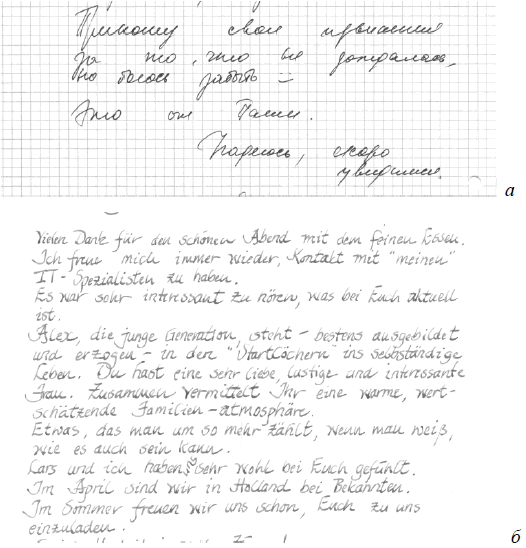 Приношу свои извинения
за то, что не дождалась,
но боюсь забыть –
Это от Паши.
Надеюсь, скоро
увидимся.
а
Vielen Dank für den schönen Abend mit dem feinen Essen.
Ich freue mich immer wieder, Kontakt mit "meinen"
IT-Spezialisten zu haben.
Es war sehr interessant zu hören, was bei Euch aktuell
ist.
Alex, die junge Generation, steht – bestens ausgebildet
und erzogen – in den "Startlöchern" ins selbständige
Leben. Du hast eine sehr liebe, lustige und interessante
Frau. Zusammen vermittelt Ihr eine warme, wert-
schätzende Familien-atmosphäre.
Etwas, das man um so mehr zählt, wenn man weiß,
wie es auch sein kann.
Lars und ich haben sehr wohl bei Euch gefühlt.
Im April sind wir in Holland bei Bekannten.
Im Sommer freuen wir uns schon, Euch zu uns
einzuladen.
б